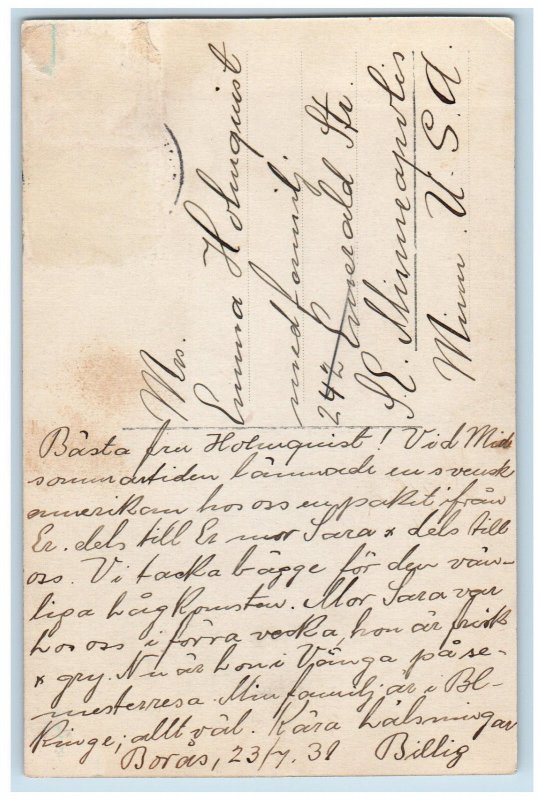 Mrs.
Emma Holmquist
med familj
242 Emerald Str.
S.E. Minneapolis
Minn. U.S.A.
Bästa fru Holmquist! Vid Mid-
sommartiden lämnade en svensk
amerikan hos oss en paket ifrån
Er. dels till Er mor Sara x dels till
oss. Vi tacka bägge för den vän-
liga hågkomsten. Mor Sara var
hos oss i förra vecka, hon är frisk
x gry. Nu är hon i Vånga på se-
mesterresa. Min familj är i Bl-
kinge; allt väl. Kära hälsningar
Borås, 23/7. 31 Billig